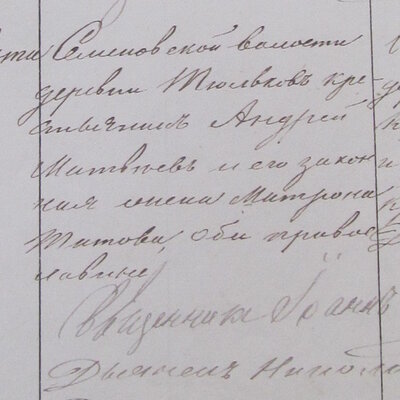 Семеновской волости
деревни Тюльковъ кре-
стьянинъ Андрей
Матвѣевъ и его закон
ная жена Матрона
Титова, оба правос
лавные
Священникъ Iоаннъ
Дьяконъ Никола